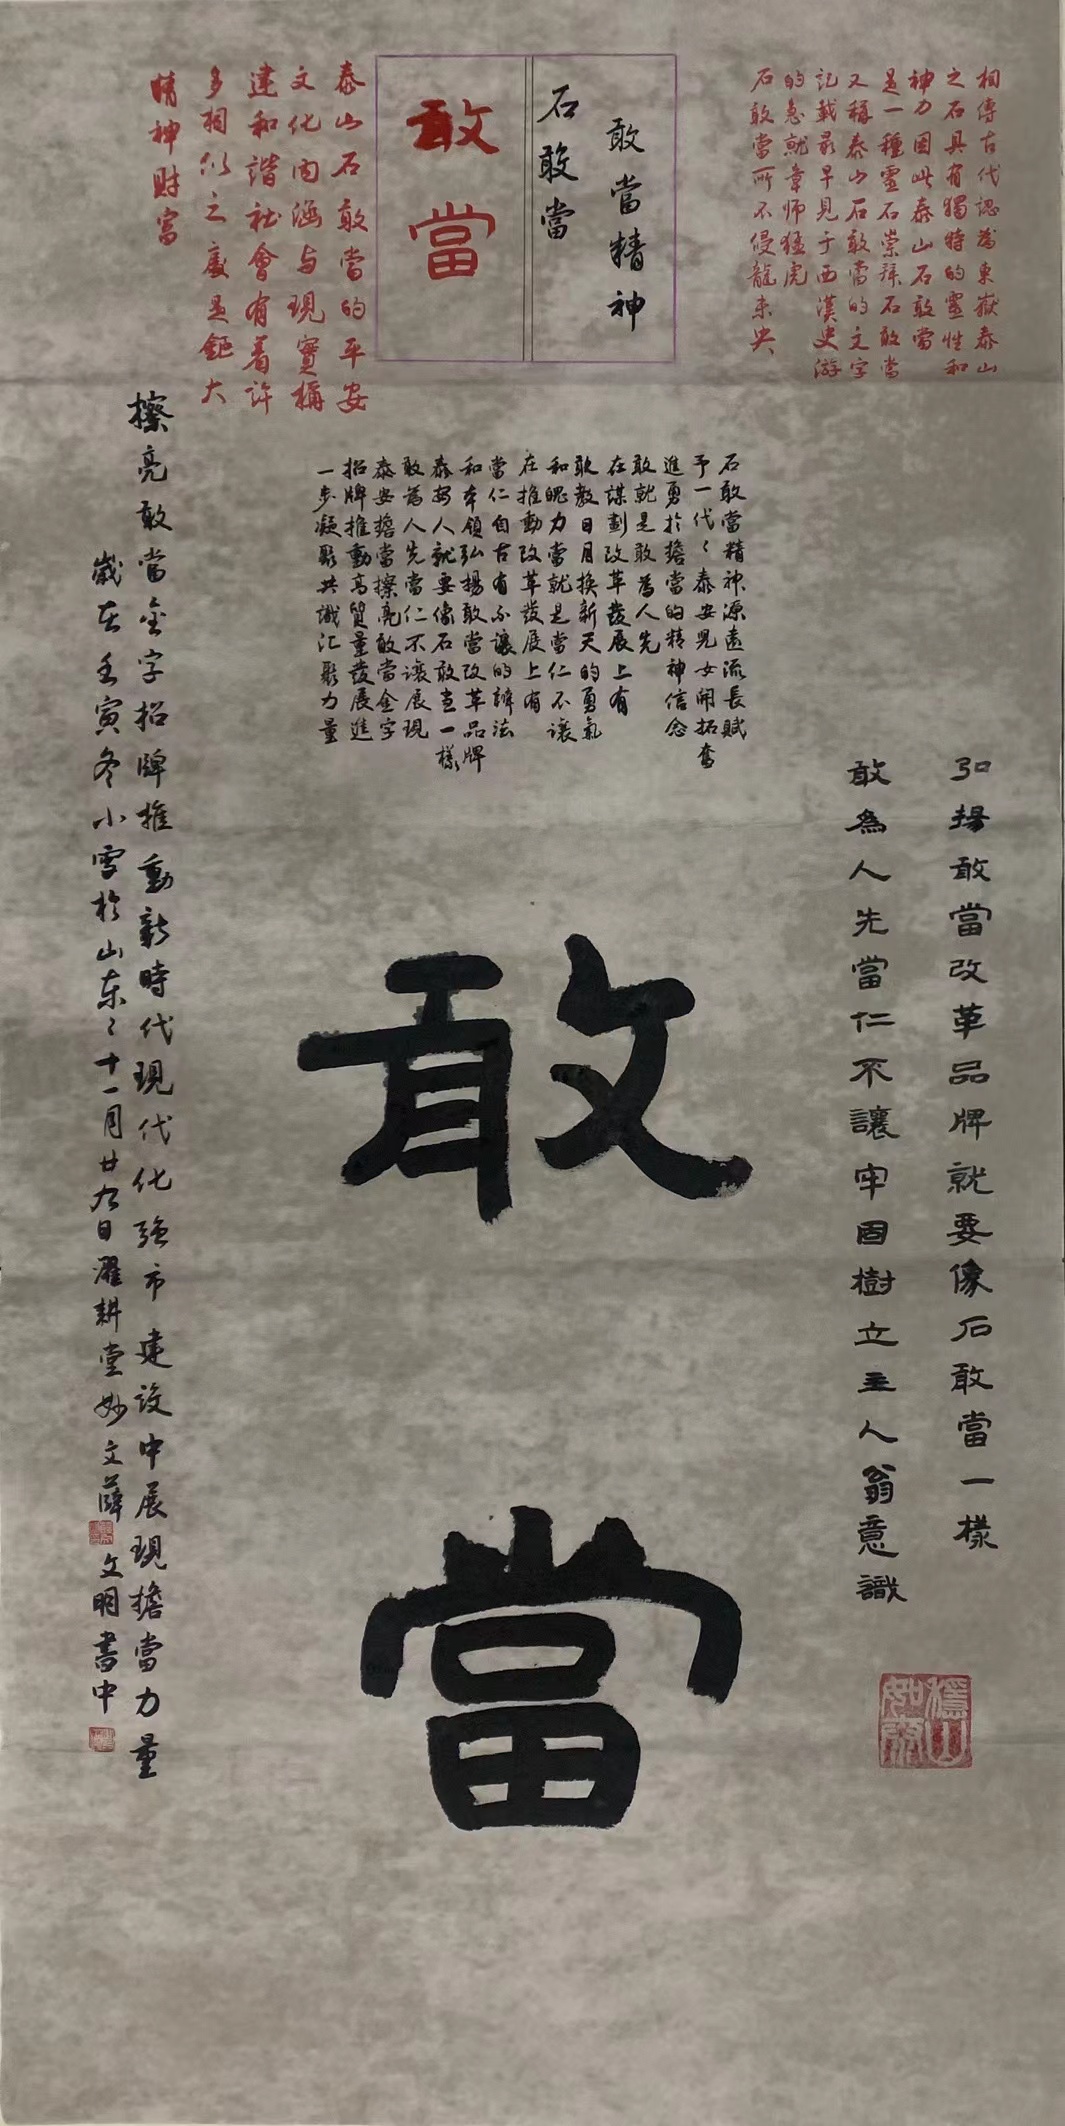 相傳古代認為東嶽泰山
之石具有獨特的靈性和
神力因此泰山石敢當
是一種靈石崇拜石敢當
又稱泰山石敢當的文字
記載最早見于西漢史游
的急就章师猛虎
石敢當所不侵龍未央
敢當精神
石敢當
敢當
泰山石敢當的平安
文化内涵与現實構
建和諧社會有着许
多相似之處是鉅大
精神財富
石敢當精神源遠流長賦
予一代〻泰安兒女開拓奮
進勇於擔當的精神信念
敢就是敢為人先
在謀劃改革發展上有
敢教日月换新天的勇氣
和魄力當就是當仁不讓
在推動改革發展上有
當仁自古有不讓的辦法
和本領弘揚敢當改革品牌
泰安人就要像石敢當一樣
敢為人先當仁不讓展現
泰安擔當擦亮敢當金字
招牌推動高質量發展進
一步凝聚共識汇聚力量
弘揚敢當改革品牌就要像石敢當一樣
敢為人先當仁不讓牢固樹立主人翁意識
敢當
擦亮敢當金字招牌推動新時代現代化强市建设中展現擔當力量
歲在壬寅冬小雪於山東〻十一月廿九日濯耕堂妙文薛文明書中